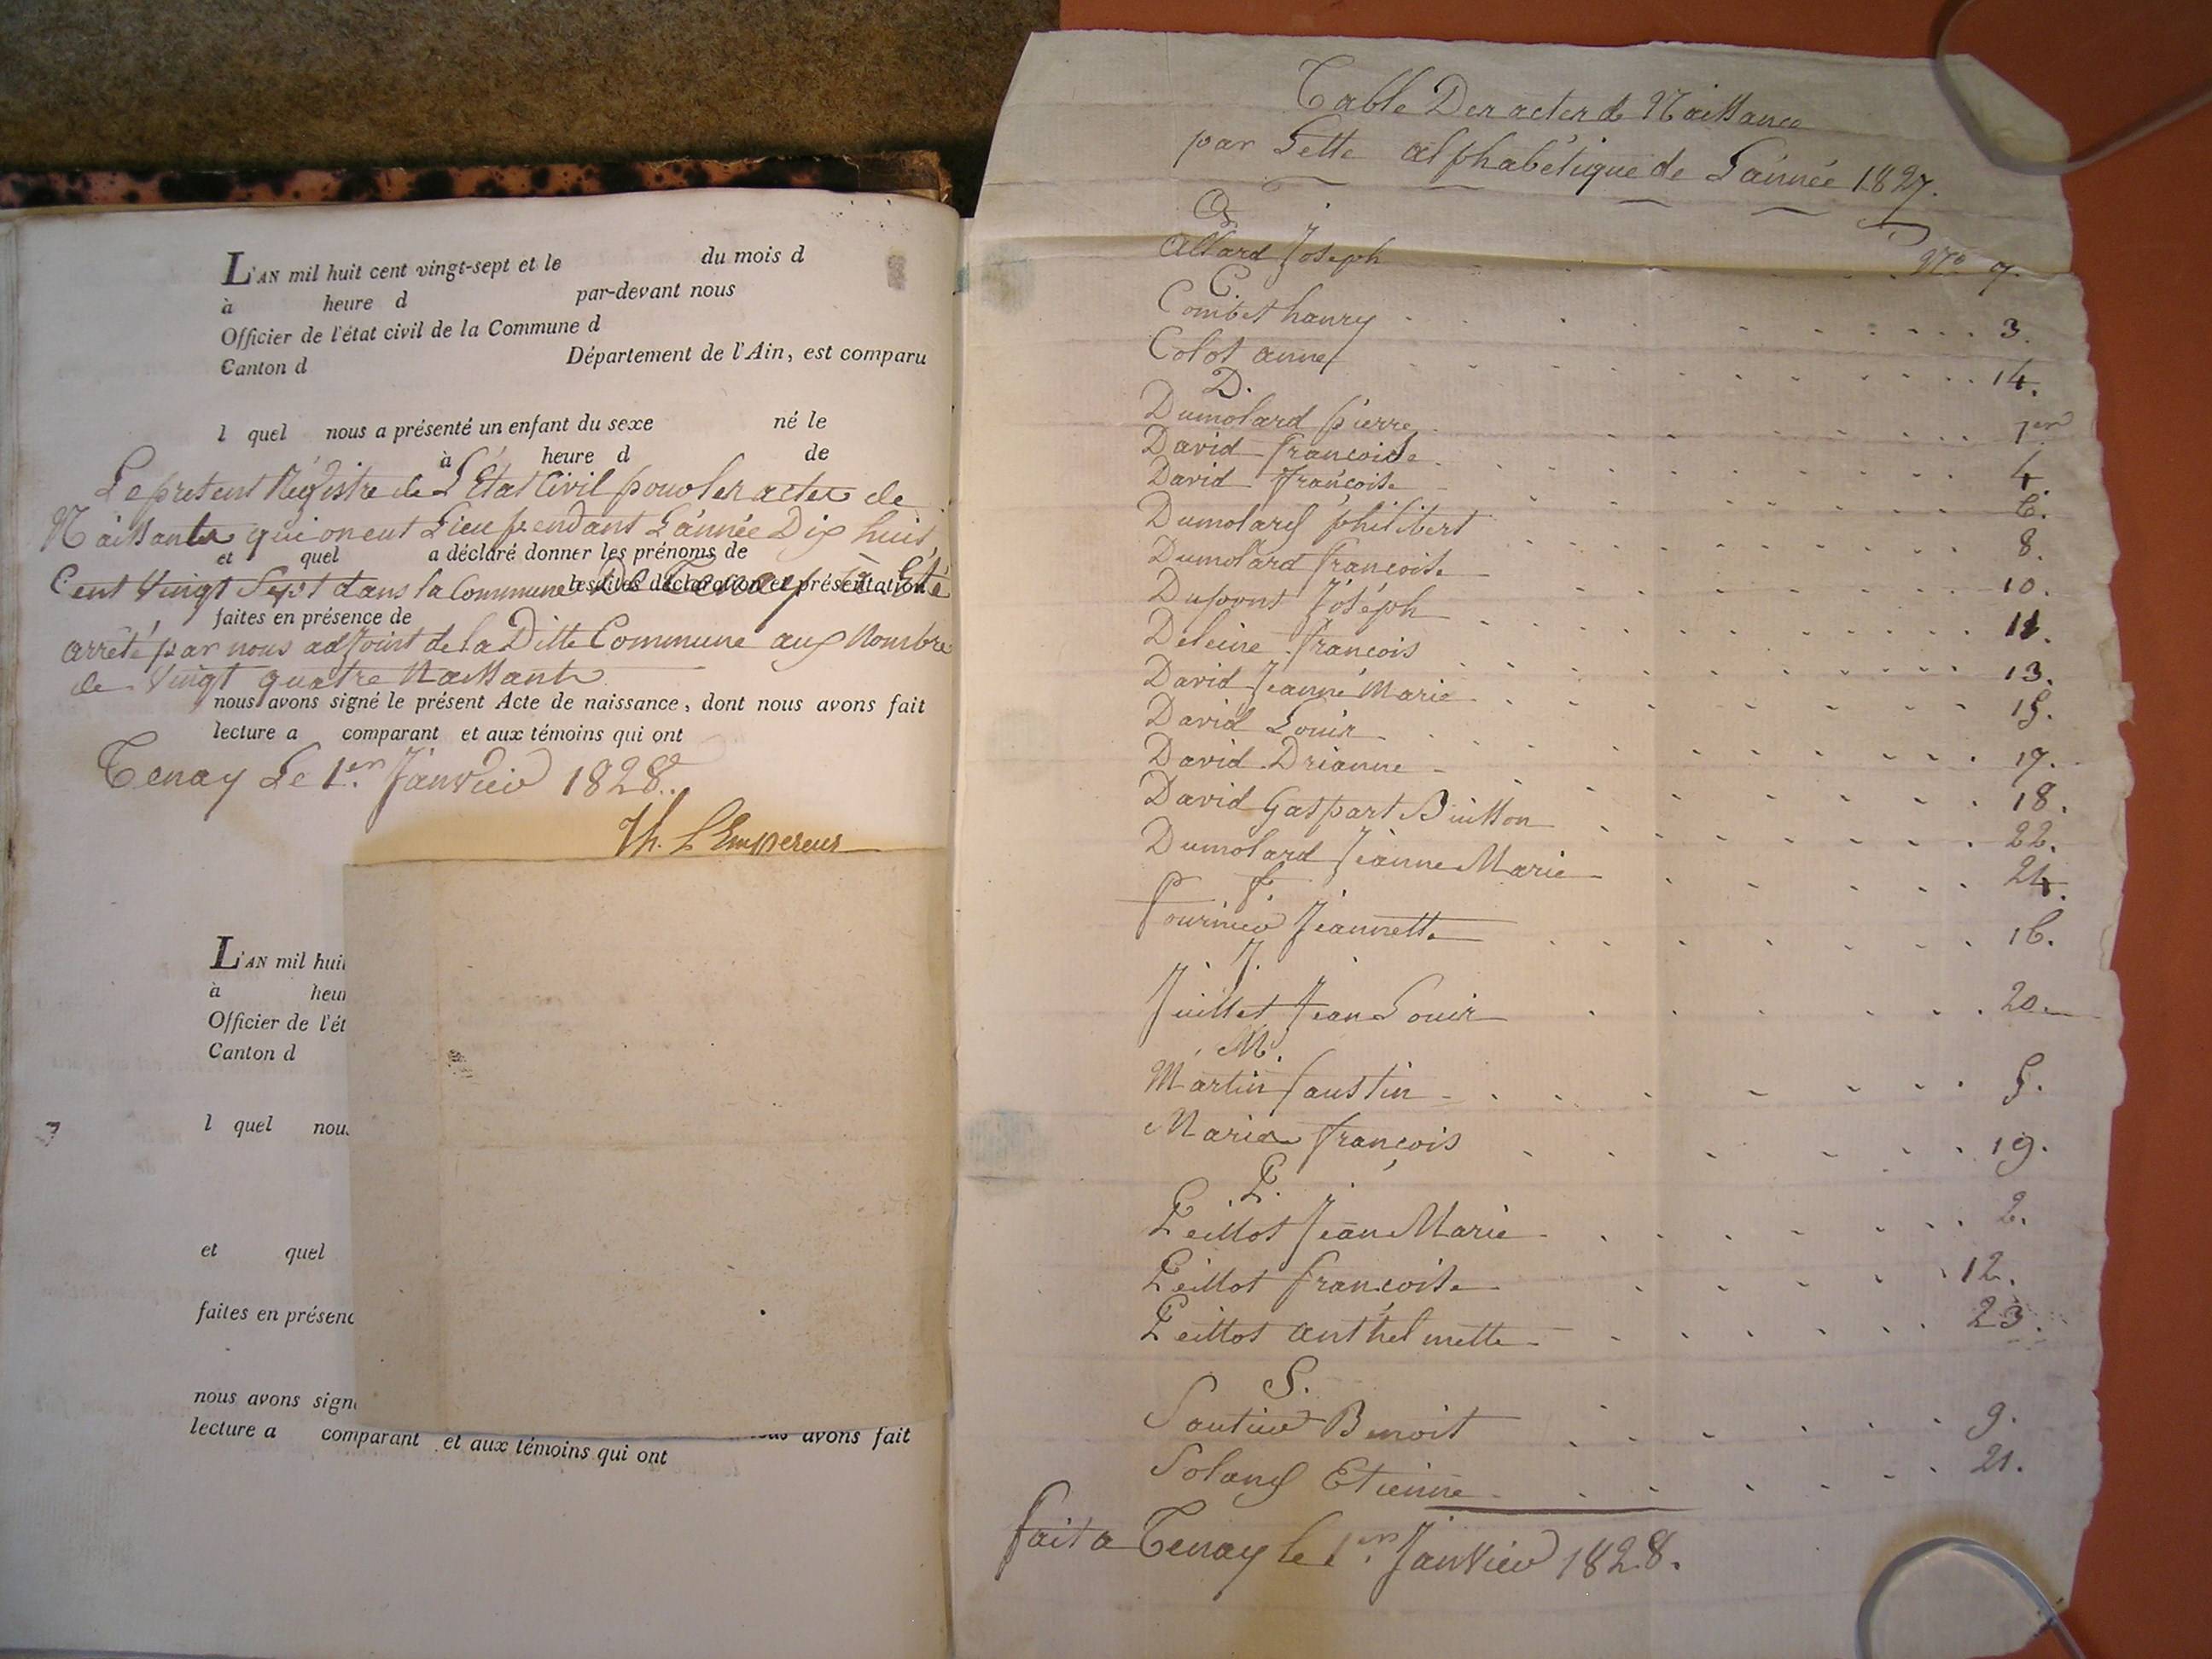 L'AN mil huit cent vingt-sept et le du mois d
à heure d par-devant nous
Officier de l'état civil de la Commune d
Canton d Département de l'Ain, est comparu
l quel nous a présenté un enfant du sexe né le
à heure d de
Le present Régistre de L'Etat Civil pour les actes de
Naissances qui on eut Lieu pendant L'année Dix huit
et quel a déclaré donner les prénoms de
Cent Vingt Sept dans la Commune De Tenay à Eté
lesdites déclaration et présentation
faites en présence de
arrêté par nous adjoint de la Ditte Commune aux Nombre
de Vingt quatre Naissants
nous avons signé le présent Acte de naissance, dont nous avons fait
lecture a comparant et aux témoins qui ont
Tenay Le 1er. Janvier 1828.
Th. L'Empereur
L'AN mil hui
à heu
Officier de l'ét
Canton d
l quel nou
et quel
faites en présenc
nous avons sign avons fait
lecture a comparant et aux témoins qui ont
Table Des actes de Naissance
par Lettre alphabétique de L'année 1827.
A
Allard Joseph No 7.
C.
Combet hanry 3.
Colot anne 14.
D.
Dumolard pierre 1er
David Francoise 4.
David françoise 6.
Dumolard philibert 8.
Dumolard françoise 10.
Dupont Joséph 11.
Deleine françois 13.
David Jeanne Marie 15.
David Louis 17.
David Drianne 18.
David Gaspart Buisson 22.
Dumolard Jeanne Marie 24.
f.
Fournier Jeannette 16.
J.
Juillet Jean Louis 20.
M.
Martin faustin 5.
Marie françois 19.
P.
Peillot Jean Marie 2.
Peillot françoise 12.
Peillot anthelmette 23.
S.
Soutier Benoit 9.
Soland Etienne 21.
fait a Tenay le 1er. Janvier 1828.